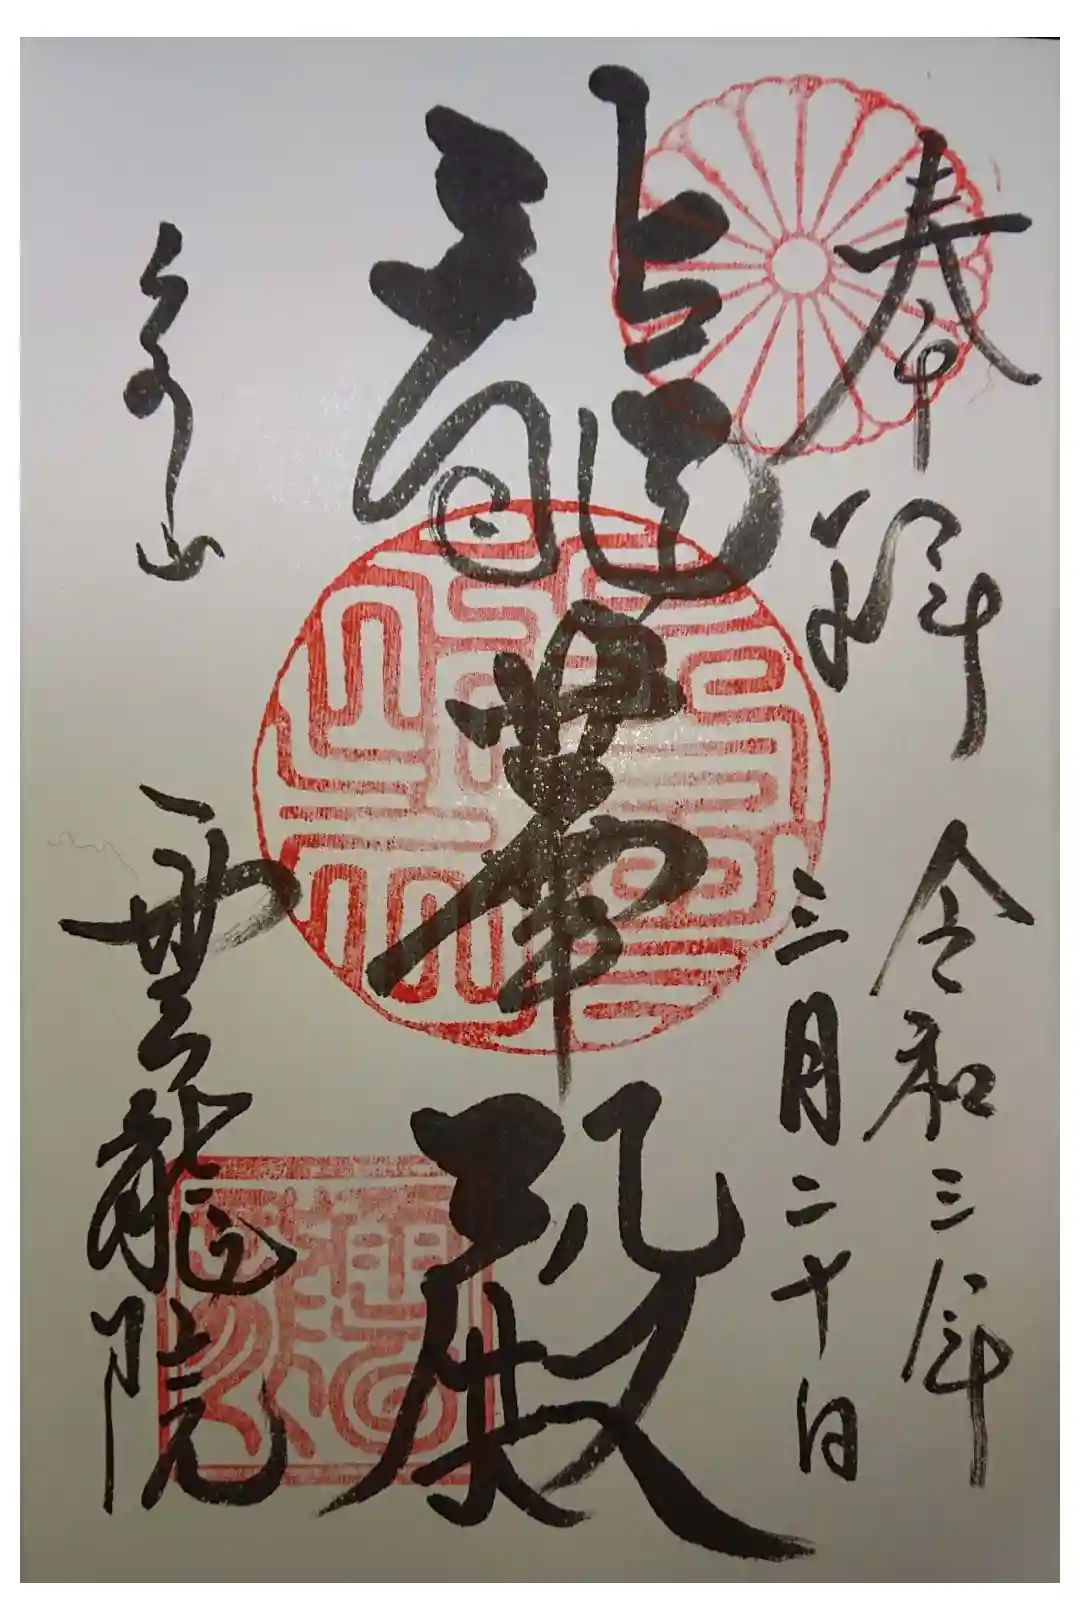 奉拝
令和三年
三月二十日
龍華殿
泉山
雲龍院